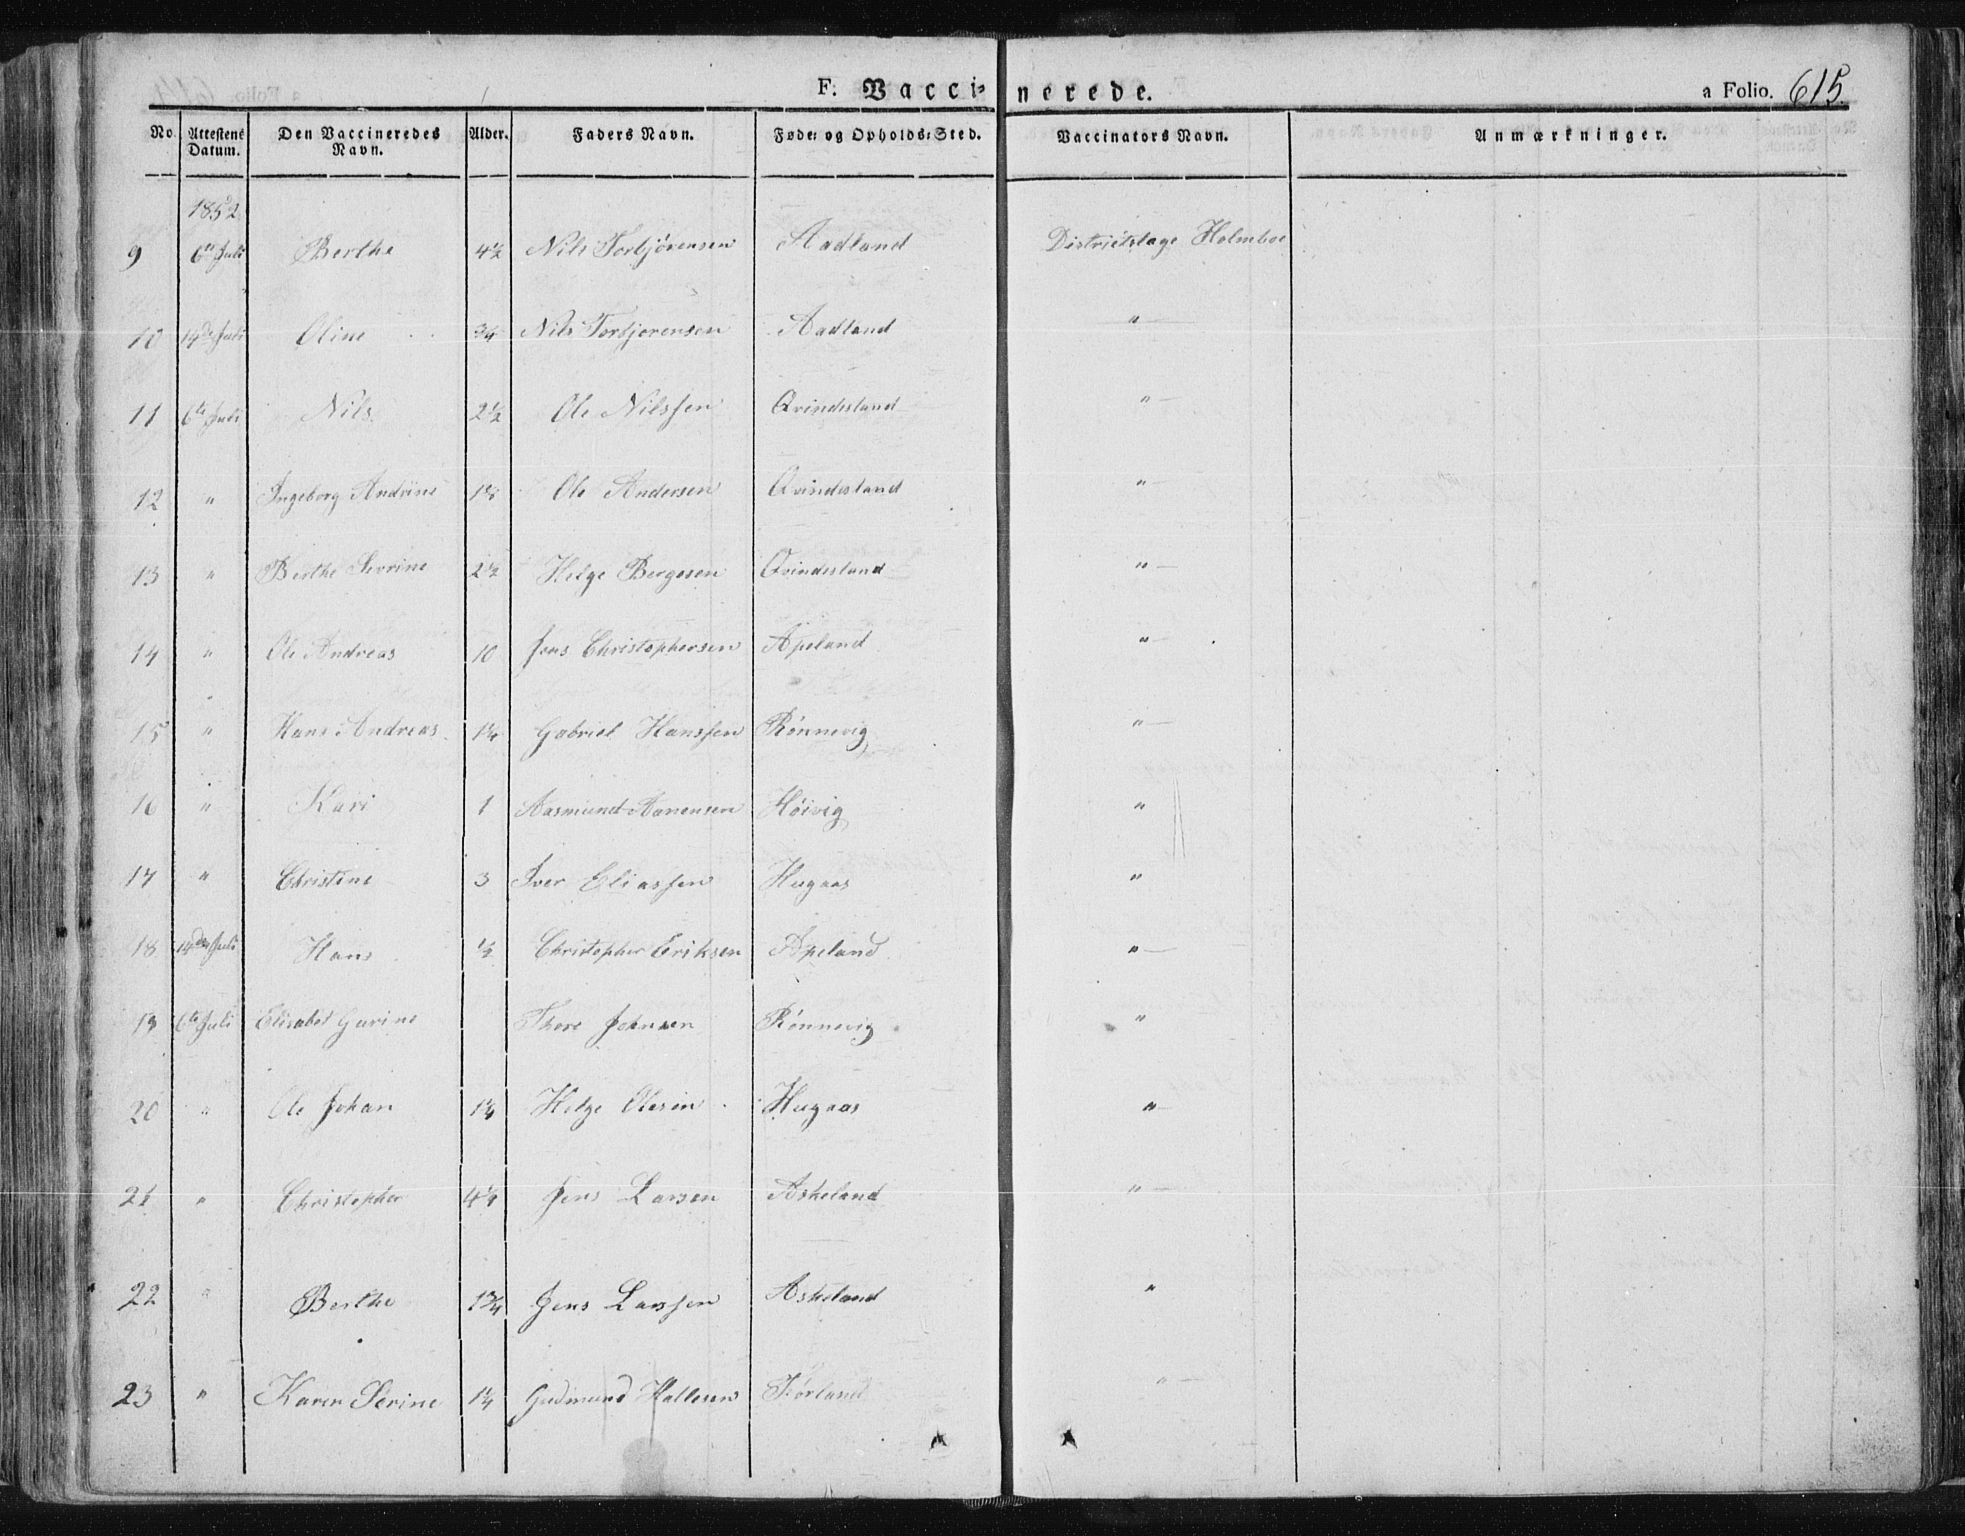 F. Vaccinerede. a Folio. 615.
No. Attestens Datum. Den Vaccineredes Navn. Alder. Faders Navn. Føde- og Opholds-Sted. Vaccinators Navn. Anmærkninger.
1852
9 6te Juli Berthe 4½ Nils Torbjørensen Aadland Districtslage Holmboe
10 14de Juli Oline 3/4 Nils Torbjorensen Aadland "
11 6te Juli Nils 2½ Ole Nilssen Qvindesland "
12 " Ingeborg Andrine Ole Andersen Qvindesland "
13 " Berthe Severine 2½ Helge Bergesen Qvindesland "
14 " Ole Andreas 10 Jens Christophersen Apeland "
15 " Hans Andreas 1¼ Gabriel Hanssen Rønnevig "
16 " Kari 1 Aasmund Aanensen Høivig "
17 " Christine 3 Iver Eliassen Hugaas "
18 14de Juli Hans ½ Christopher Eriksen Apeland "
19 6te Juli Elisabet Gurine Thore Johnsen Rønnevig "
20 " Ole Johan Helge Olesen Hugaas "
21 " Christopher 4¼ Jens Larsen Askeland "
22 " Berthe 1¾ Jens Larssen Askeland "
23 " Karen Serine 1¼ Gudmund Hallesen Førland "